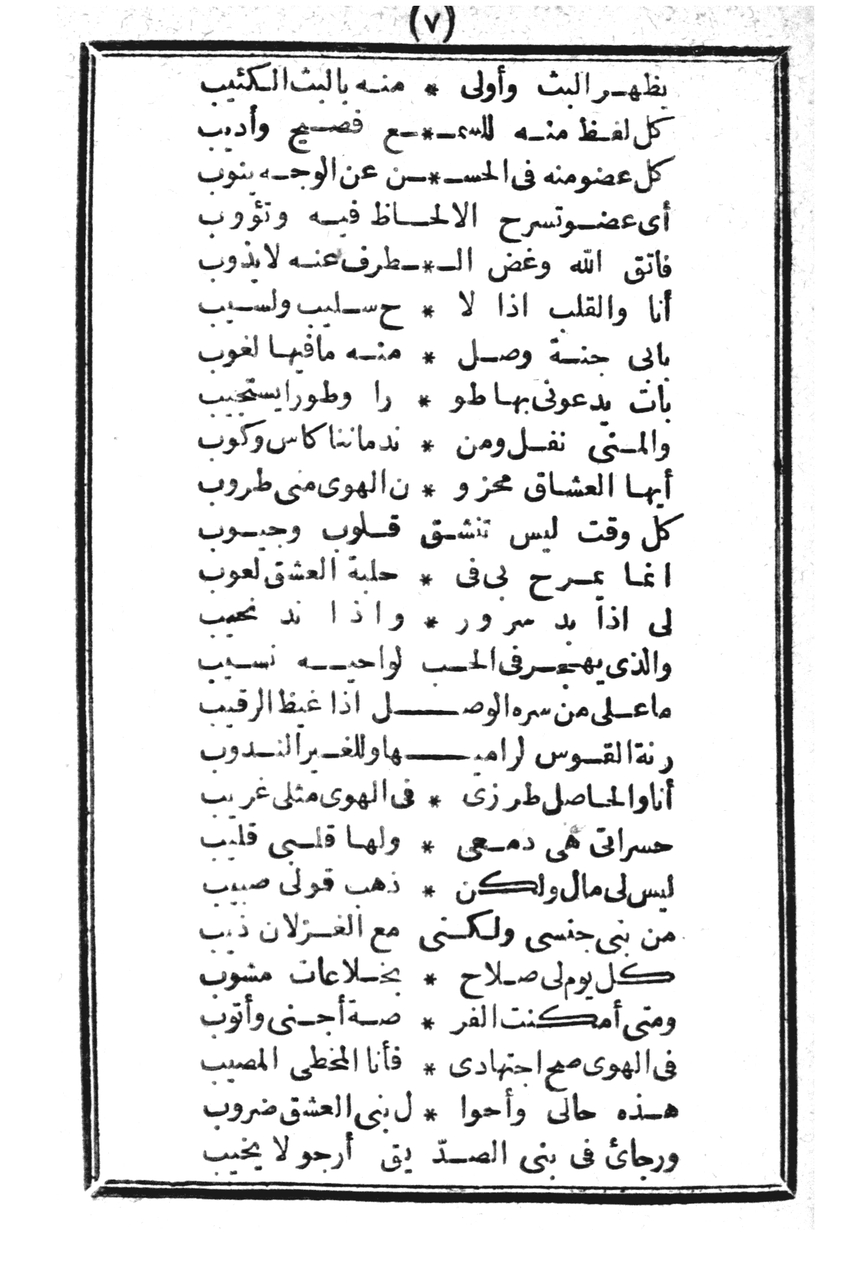 (٧)
يظهر البث وأولى * منه بالبث الكئيب
كل لفظ منه للسمـ*ـع فصيح وأديب
كل عضو منه فى الحسـ*ـن عن الوجه ينوب
أى عضو تسرح الالحاظ فيه وتؤوب
فاتق الله وغض الـ*ـطرف عنه لا يذوب
أنا والقلب اذا لا * ح سليب ولسيب
بابى جنة وصل * منه مافيها لغوب
بات يدعونى بها طو * را وطورا يستجيب
والمنى نقل ومن * ندماننا كاس وكوب
أيها العشاق محزو * ن الهوى منى طروب
كل وقت ليس تنشق قلوب وجيوب
انما يمرح بى فى * حلبة العشق لعوب
لى اذا بد سرور * واذا ند نحيب
والذى يهجر فى الحب لواحيه نسيب
ما على من سره الوصـل اذا غيظ الرقيب
رنة القوس لراميـها وللغير الندوب
أنا والحاصل طرزى * فى الهوى مثلى غريب
حسراتى هى دمعى * ولها قلبى قليب
ليس لى مال ولكن * ذهب قولى صبيب
من بنى جنسى ولكنى مع الغزلان ذيب
كل يوم لى صلاح * بخلاعات مشوب
ومتى أمكنت الفر * صة أجنى وأتوب
فى الهوى صح اجتهادى * فأنا المخطى المصيب
هذه حالى وأحوا * ل بنى العشق ضروب
ورجائ فى بنى الصدّ يق أرجو لا يخيب